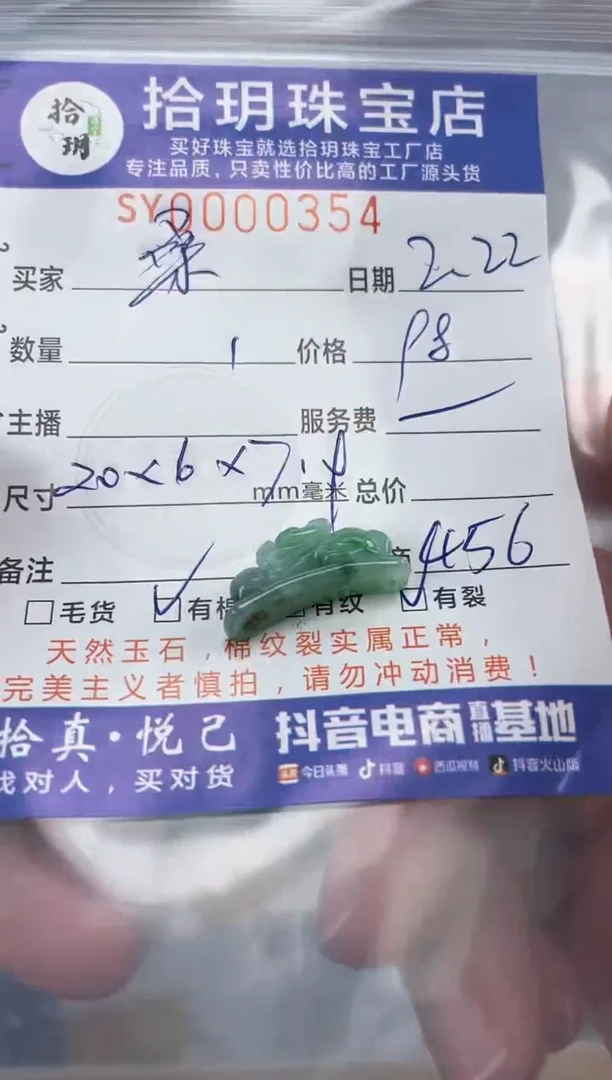 拾玥
拾玥珠宝店
买好珠宝就选拾玥珠宝工厂店
专注品质，只卖性价比高的工厂源头货
SY0000354
买家 日期 2.22
数量 1 价格 98
主播 服务费 —
尺寸 20×6×7.4 mm毫米 总价
备注 456
□毛货 ☑有棉 有纹 ☑有裂
天然玉石，棉纹裂实属正常，
完美主义者慎拍，请勿冲动消费！
拾真·悦己 抖音电商直播基地
找对人，买对货 今日头条 抖音 西瓜视频 抖音火山版